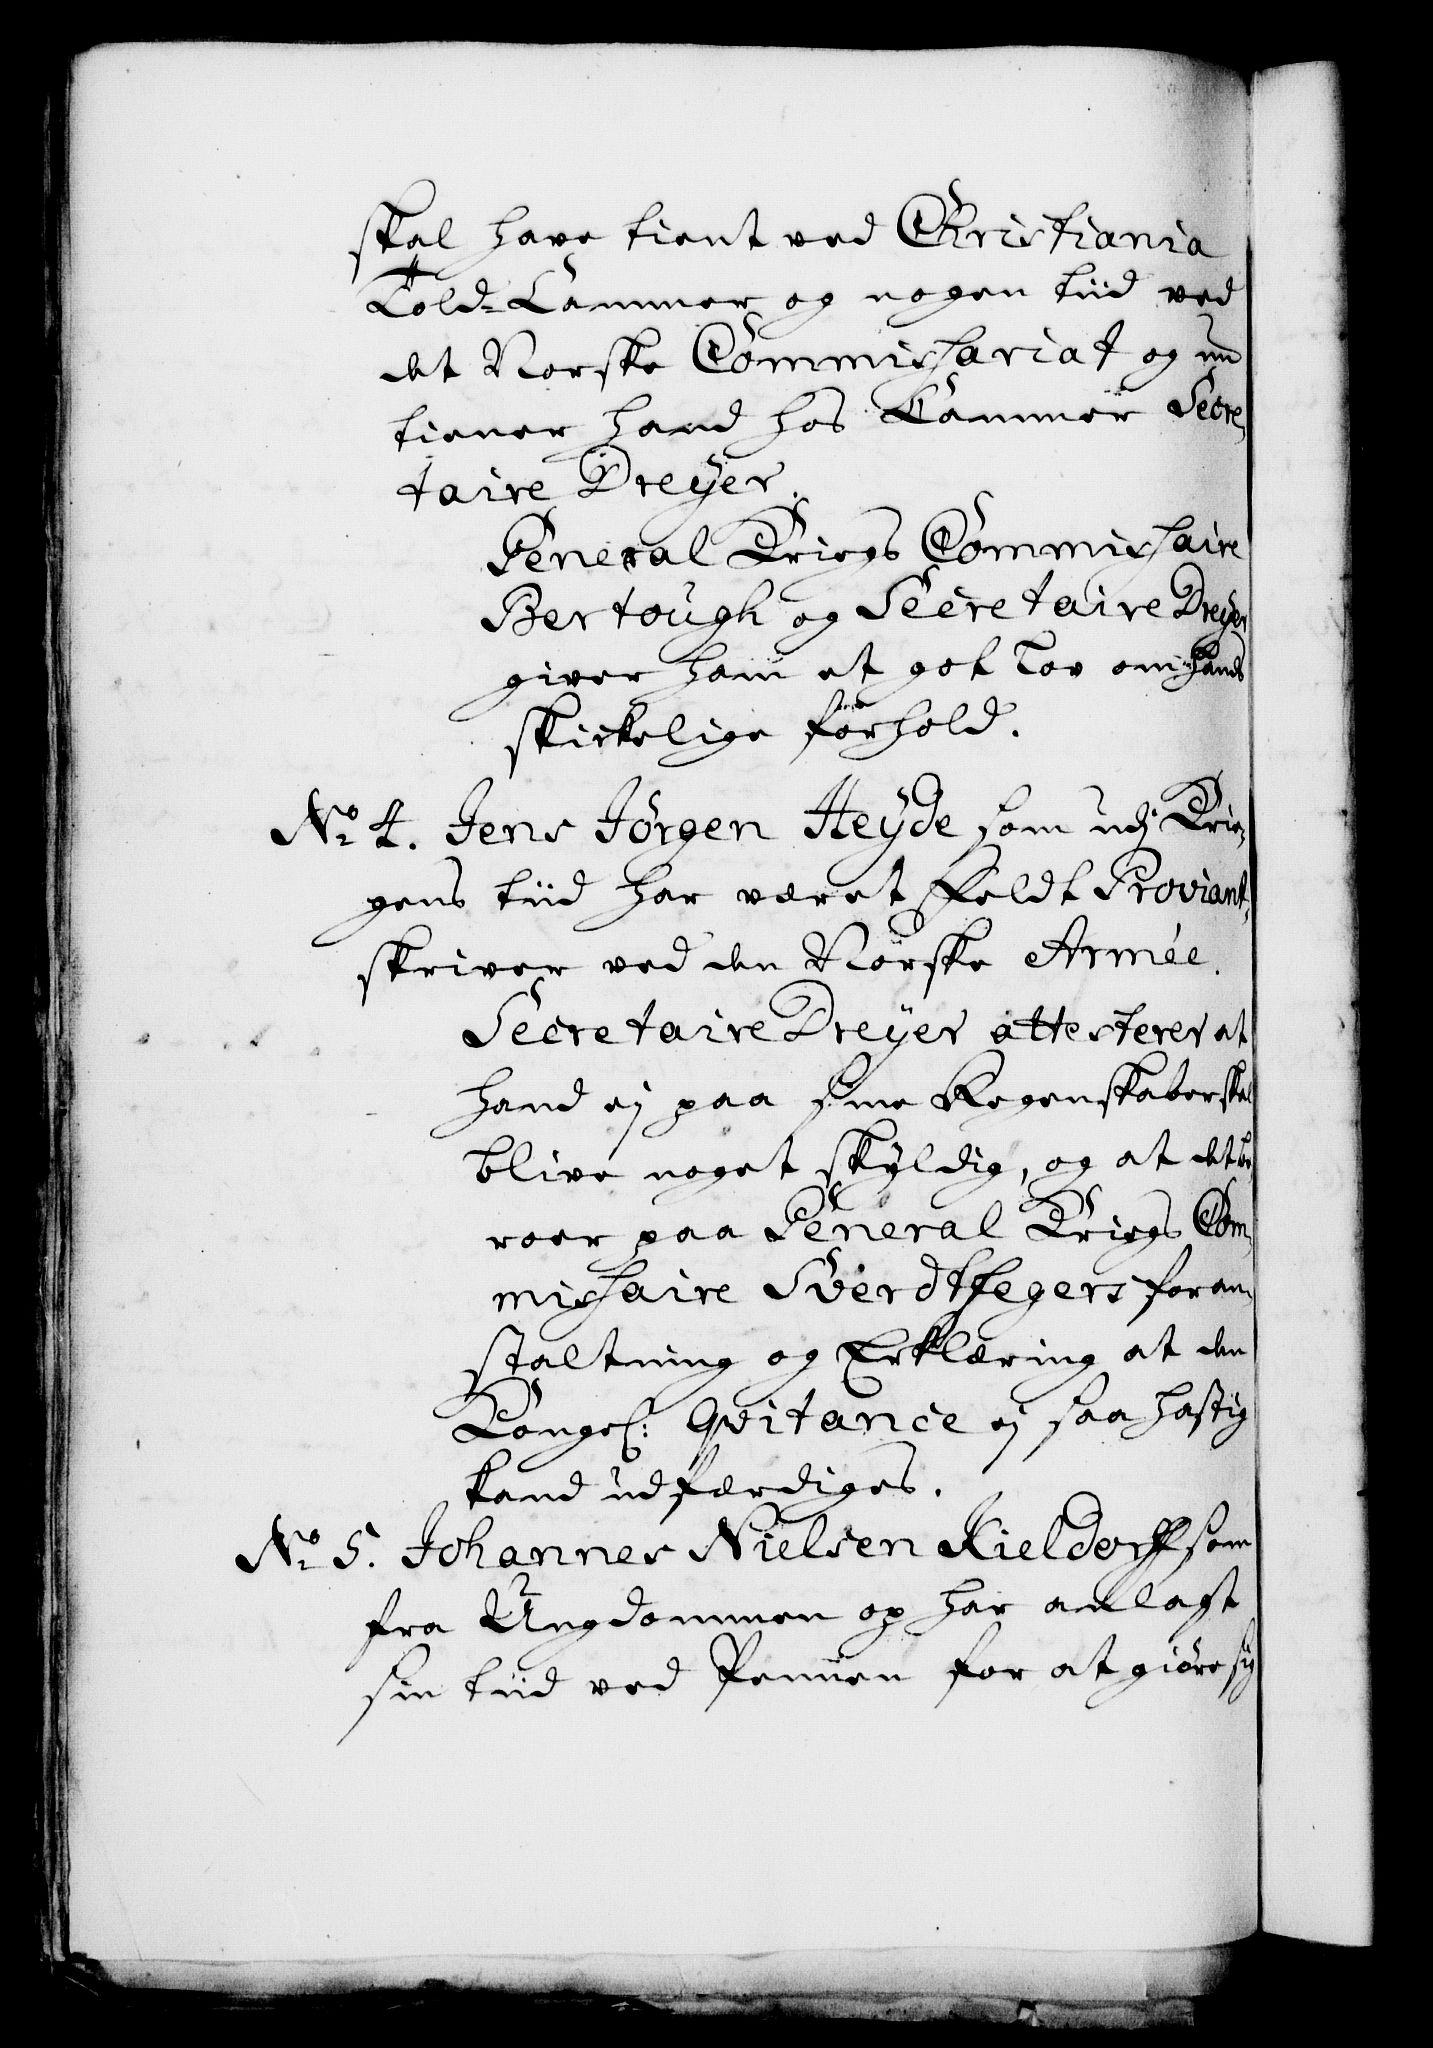 skal have tient ved Christiania
Told-Cammer og nogen tiid ved
det Norske Commissariat og nu
tiener hand hos Cammer Secre,
taire Dreÿer.
General Kriegs Commissaire
Bertough og Secretaire Dreÿer
giver ham et got lov om hands
skickelige forhold.
No 4. Jens Jörgen Heÿde som udj Krie,
gens tiid har været Feldt Proviant,
skriver ved den Norske Armée.
Secretaire Dreÿer attesterer at
hand ej paa sine Regenskaber skal
blive noget skÿldig, og at det be,
roer paa General Kriegs Com,
missaire Sverdtfegers foran,
staltning og Erklæring at den
Kongel: Qvitance ej saa hastig
kand udfærdiges.
No 5. Johannes Nielsen Kieldorff som
fra Ungdommen op har anlagt
sin tiid ved Pennen for at giöre sig